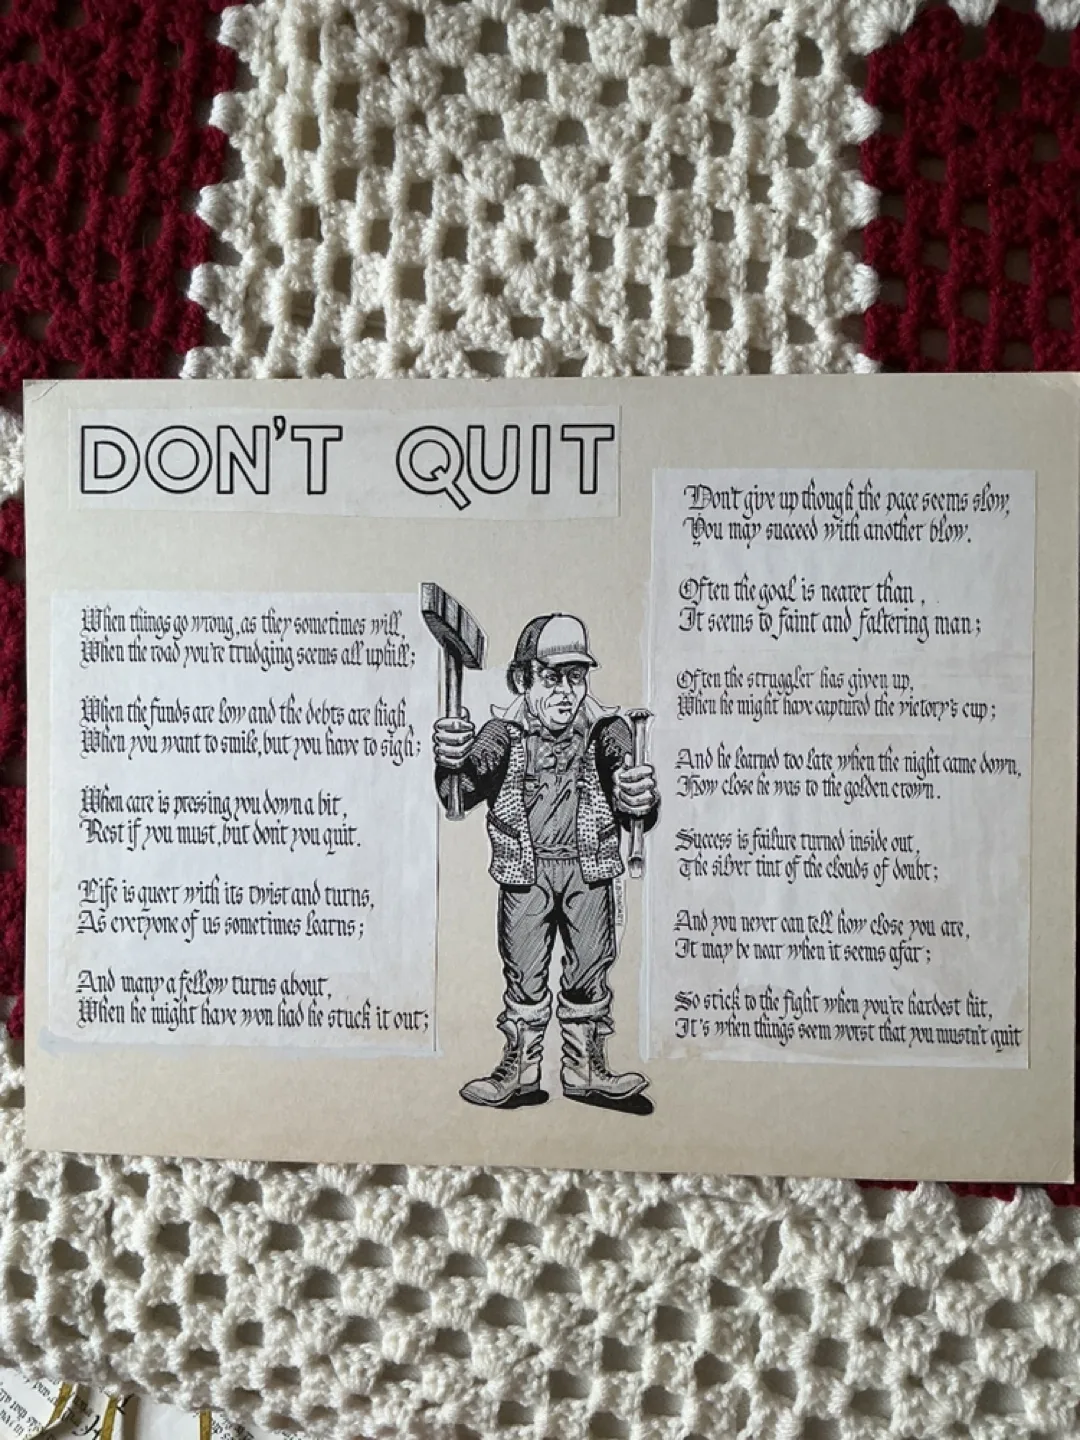 DON'T QUIT
When things go wrong, as they sometimes will,
When the road you're trudging seems all uphill;
When the funds are low and the debts are high,
When you want to smile, but you have to sigh;
When care is pressing you down a bit,
Rest if you must, but don't you quit.
Life is queer with its twist and turns,
As everyone of us sometimes learns;
And many a fellow turns about,
When he might have won had he stuck it out;
Don't give up though the pace seems slow,
You may succeed with another blow.
Often the goal is nearer than,
It seems to faint and faltering man;
Often the struggler has given up,
When he might have captured the victory's cup;
And he learned too late when the night came down,
How close he was to the golden crown.
Success is failure turned inside out,
The silver tint of the clouds of doubt;
And you never can tell how close you are,
It may be near when it seems afar;
So stick to the fight when you're hardest hit,
It's when things seem worst that you mustn't quit